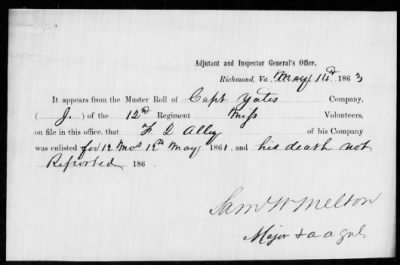 Adjutant and Inspector General's Office,
Richmond, Va. May 14th 1863
It appears from the Muster Roll of Capt Yates Company,
( J. ) of the 12th Regiment Miss Volunteers,
on file in this office, that F L Alley of his Company
was enlisted for 12 Mos 12th May 1861, and his death not
Reported 186 .
Saml W Melton
Major & a a genl